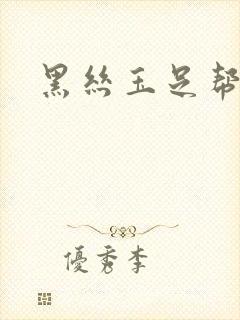 黑丝玉足帮
優秀李